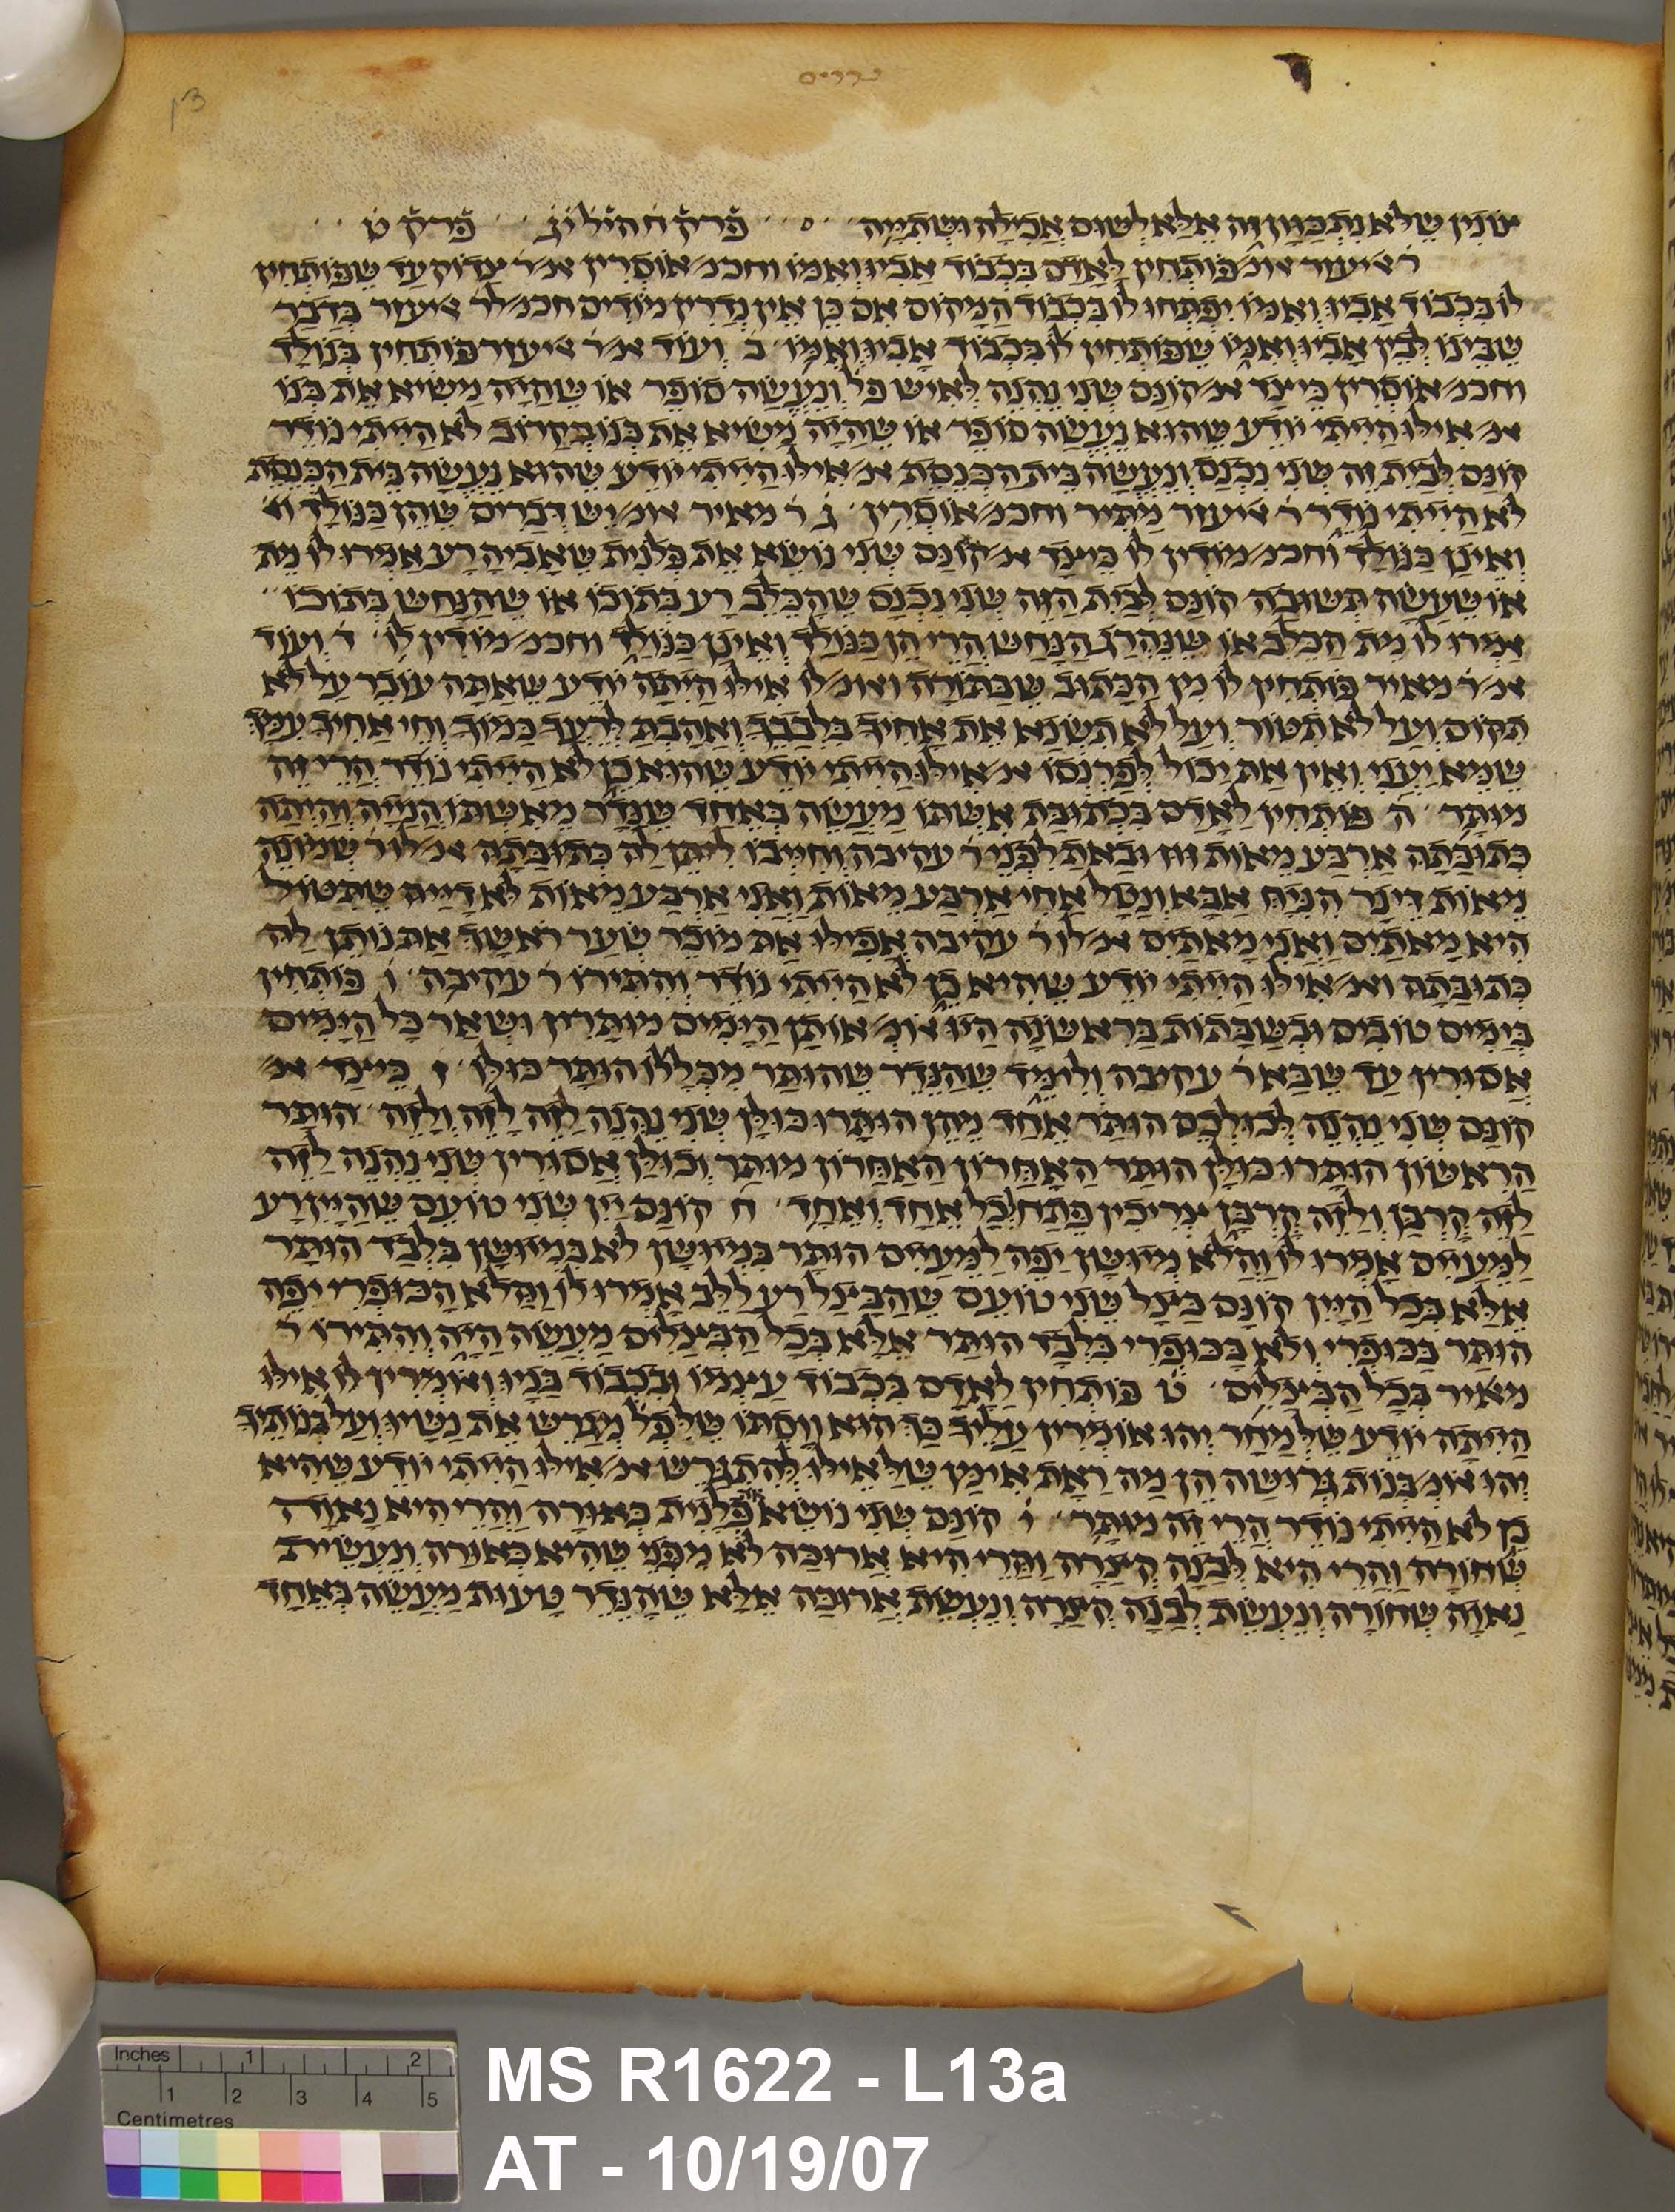 נדרים
שֹנין שלא נתכוון זה אלא לשום אכילה ושתייה פרק ח הילׄ יגׄ פרק ט
ר אליעזר אומ׳ פותחין לאדם בכבוד אביו ואמו וחכמ׳ אוסרין אמ׳ ר צדוק עד שפותחין
לו בכבוד אביו ואמו יפתחו לו בכבוד המקום אם כן אין נדרין מודים חכמ׳ לר אליעזר בדבר
שבינו לבין אביו ואמו שפותחין לו בכבוד אביו ואמו ב ועוד אמ׳ ר אליעזר פותחין בנולד
וחכמ׳ אוסרין כיצד אמ׳ קונם שני נהנה לאיש פל׳ ונעשה סופר או שהיה משיא את בנו
אמ׳ אילו הייתי יודע שהוא נעשה סופר או שהיה משיא את בנו בקרוב לא הייתי נודר
קונם לבית זה שני נכנס ונעשה בית הכנסת אמ׳ אילו הייתי יודע שהוא נעשה בית הכנסת
לא הייתי נודר ר אליעזר מתיר וחכמ׳ אוסרין ג ר מאיר אומ׳ יש דברים שהן כנולד
ואינן כנולד וחכמ׳ מודין לו כיצד אמ׳ קונם שני נושא את פלנית שאביה רע אמרו לו מת
או שעשה תשובה קונם לבית הזה שני נכנס שהכלב רע בתוכו או שהנחש בתוכו
אמרו לו מת הכלב או שנהרג הנחש הרי הן כנולד ואינן כנולד וחכמ׳ מודין לו ד ועוד
אמ׳ ר מאיר פותחין לו מן הכתוב שבתורה ואומ׳ לו אילו הייתה יודע שאתה עובר על לא
תקום ועל לא תטור ועל לא תשנא את אחיך בלבבך ואהבת לרעך כמוך וחי אחיך עמך
שמא יעני ואין את יכול לפרנסו אמ׳ אילו הייתי יודע שהוא כן לא הייתי נודר הרי זה
מותר ה פותחין לאדם בכתובת אשתו מעשה באחד שנדר מאשתו הנייה והיתה
כתובתה ארבע מאות זוז ובאת לפני ר עקיבה וחייבו ליתן לה כתובתה אמ׳ לו ר שמונה
מאות דינר הניח אבא ונטל אחי ארבע מאות ואני ארבע מאות לא דייה שתטול
היא מאתים ואני מאתים אמ׳ לו ר עקיבה אפילו את מוכר שער ראשך את נותן לה
כתובתה אמ׳ אילו הייתי יודע שהיא כן לא הייתי נודר והתירו ר עקיבה ו פותחין
בימים טובים ובשבתות בראשונה היו אומ׳ אותן הימים מותרין ושאר כל הימים
אסורין עד שבא ר עקיבה ולימד שהנדר שהותר מכללו הותר כולו ז כיצד אמ׳
קונם שני נהנה לכולכם הותר אחד מהן הותרו כולן שני נהנה לזה לזה ולזה הותר
הראשון הותרו כולן הותר האחרון האחרון מותר וכולן אסורין שני נהנה לזה
לזה קרבן ולזה קרבן צריכין פתח לכל אחד ואחד ח קונם יין שני טועם שהיין רע
למעיים אמרו לו והלא מיושן יפה למעיים הותר במיושן לא במיושן בלבד הותר
אלא בכל היין קונם בצל שני טועם שהבצל רע ללב אמרו לו והלא הכופרי יפה
הותר בכופרי ולא בכופרי בלבד הותר אלא בכל הבצלים מעשה היה והתירו ר
מאיר בכל הבצלים ט פותחין לאדם בכבוד עצמו ובכבוד בניו ואומרין לו אילו
הייתה יודע שלמחר יהו אומרין עליך כך הוא ווסתו שלפל׳ מגרש את נשיו ועל בנותיך
יהו אומ׳ בנות גרושה הן מה ראת אימן שלאילו להתגרש אמ׳ אילו הייתי יודע שהיא
כן לא הייתי נודר הרי זה מותר י קונם שני נושא את פלנית כאורה והרי היא נאווה
שחורה והרי היא לבנה קצרה והרי היא ארוכה לא מפני שהיא כאורה ונעשית
נאווה שחורה ונעשת לבנה קצרה ונעשת ארוכה אלא שהנדר טעות מעשה באחד
Inches 1 2
1 2 3 4 5
Centimetres
MS R1622 - L13a
AT - 10/19/07